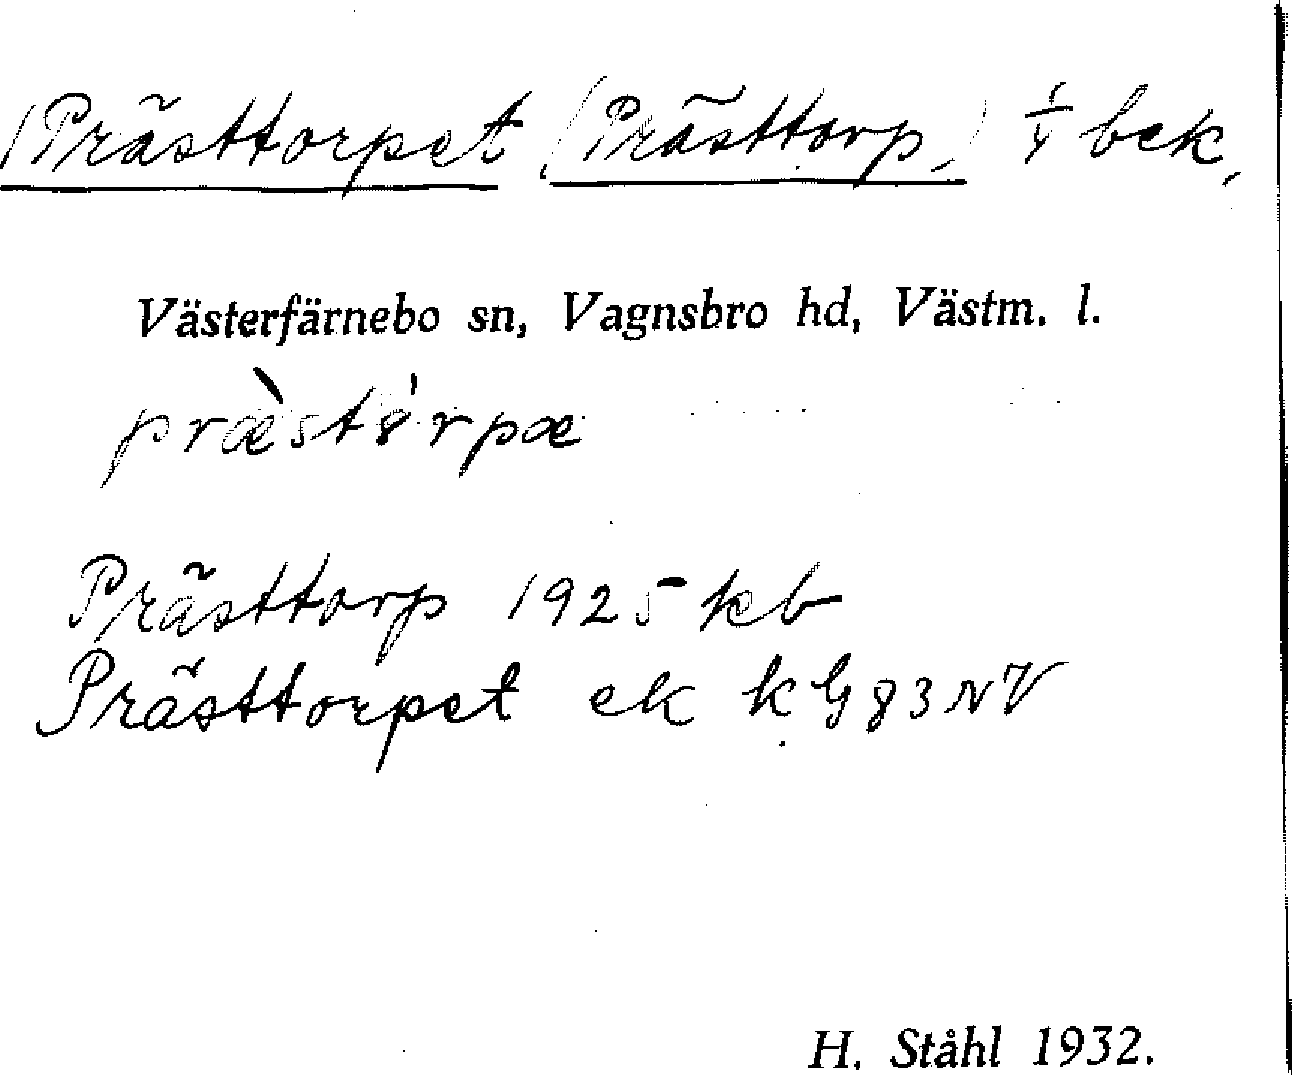 Prästtorpet (Prästtorp.) bek,
Västerfärnebo sn, Vagnsbro hd, Västm. l.
præ̀stꞷ́rpæ
Prästtorp 1925 kb
Prästtorpet ek k G 83 NV
H. Ståhl 1932.